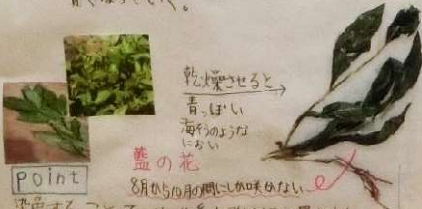 乾燥させると
青っぽい
海そうのような
におい
藍の花
8月から10月の間にしか咲かない
point